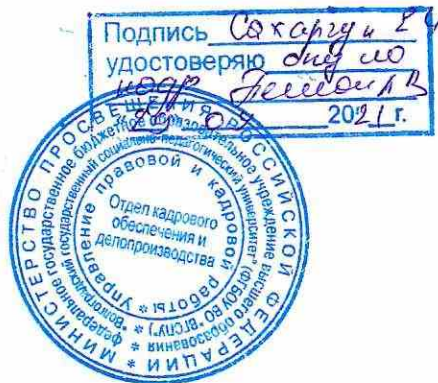 Подпись
удостоверяю
2021 г.
МИНИСТЕРСТВО ПРОСВЕЩЕНИЯ РОССИЙСКОЙ ФЕДЕРАЦИИ *
федеральное государственное бюджетное образовательное учреждение высшего образования *
"Волгоградский государственный социально-педагогический университет" (ФГБОУ ВО "ВГСПУ") *
Управление правовой и кадровой работы *
Отдел кадрового
обеспечения и
делопроизводства